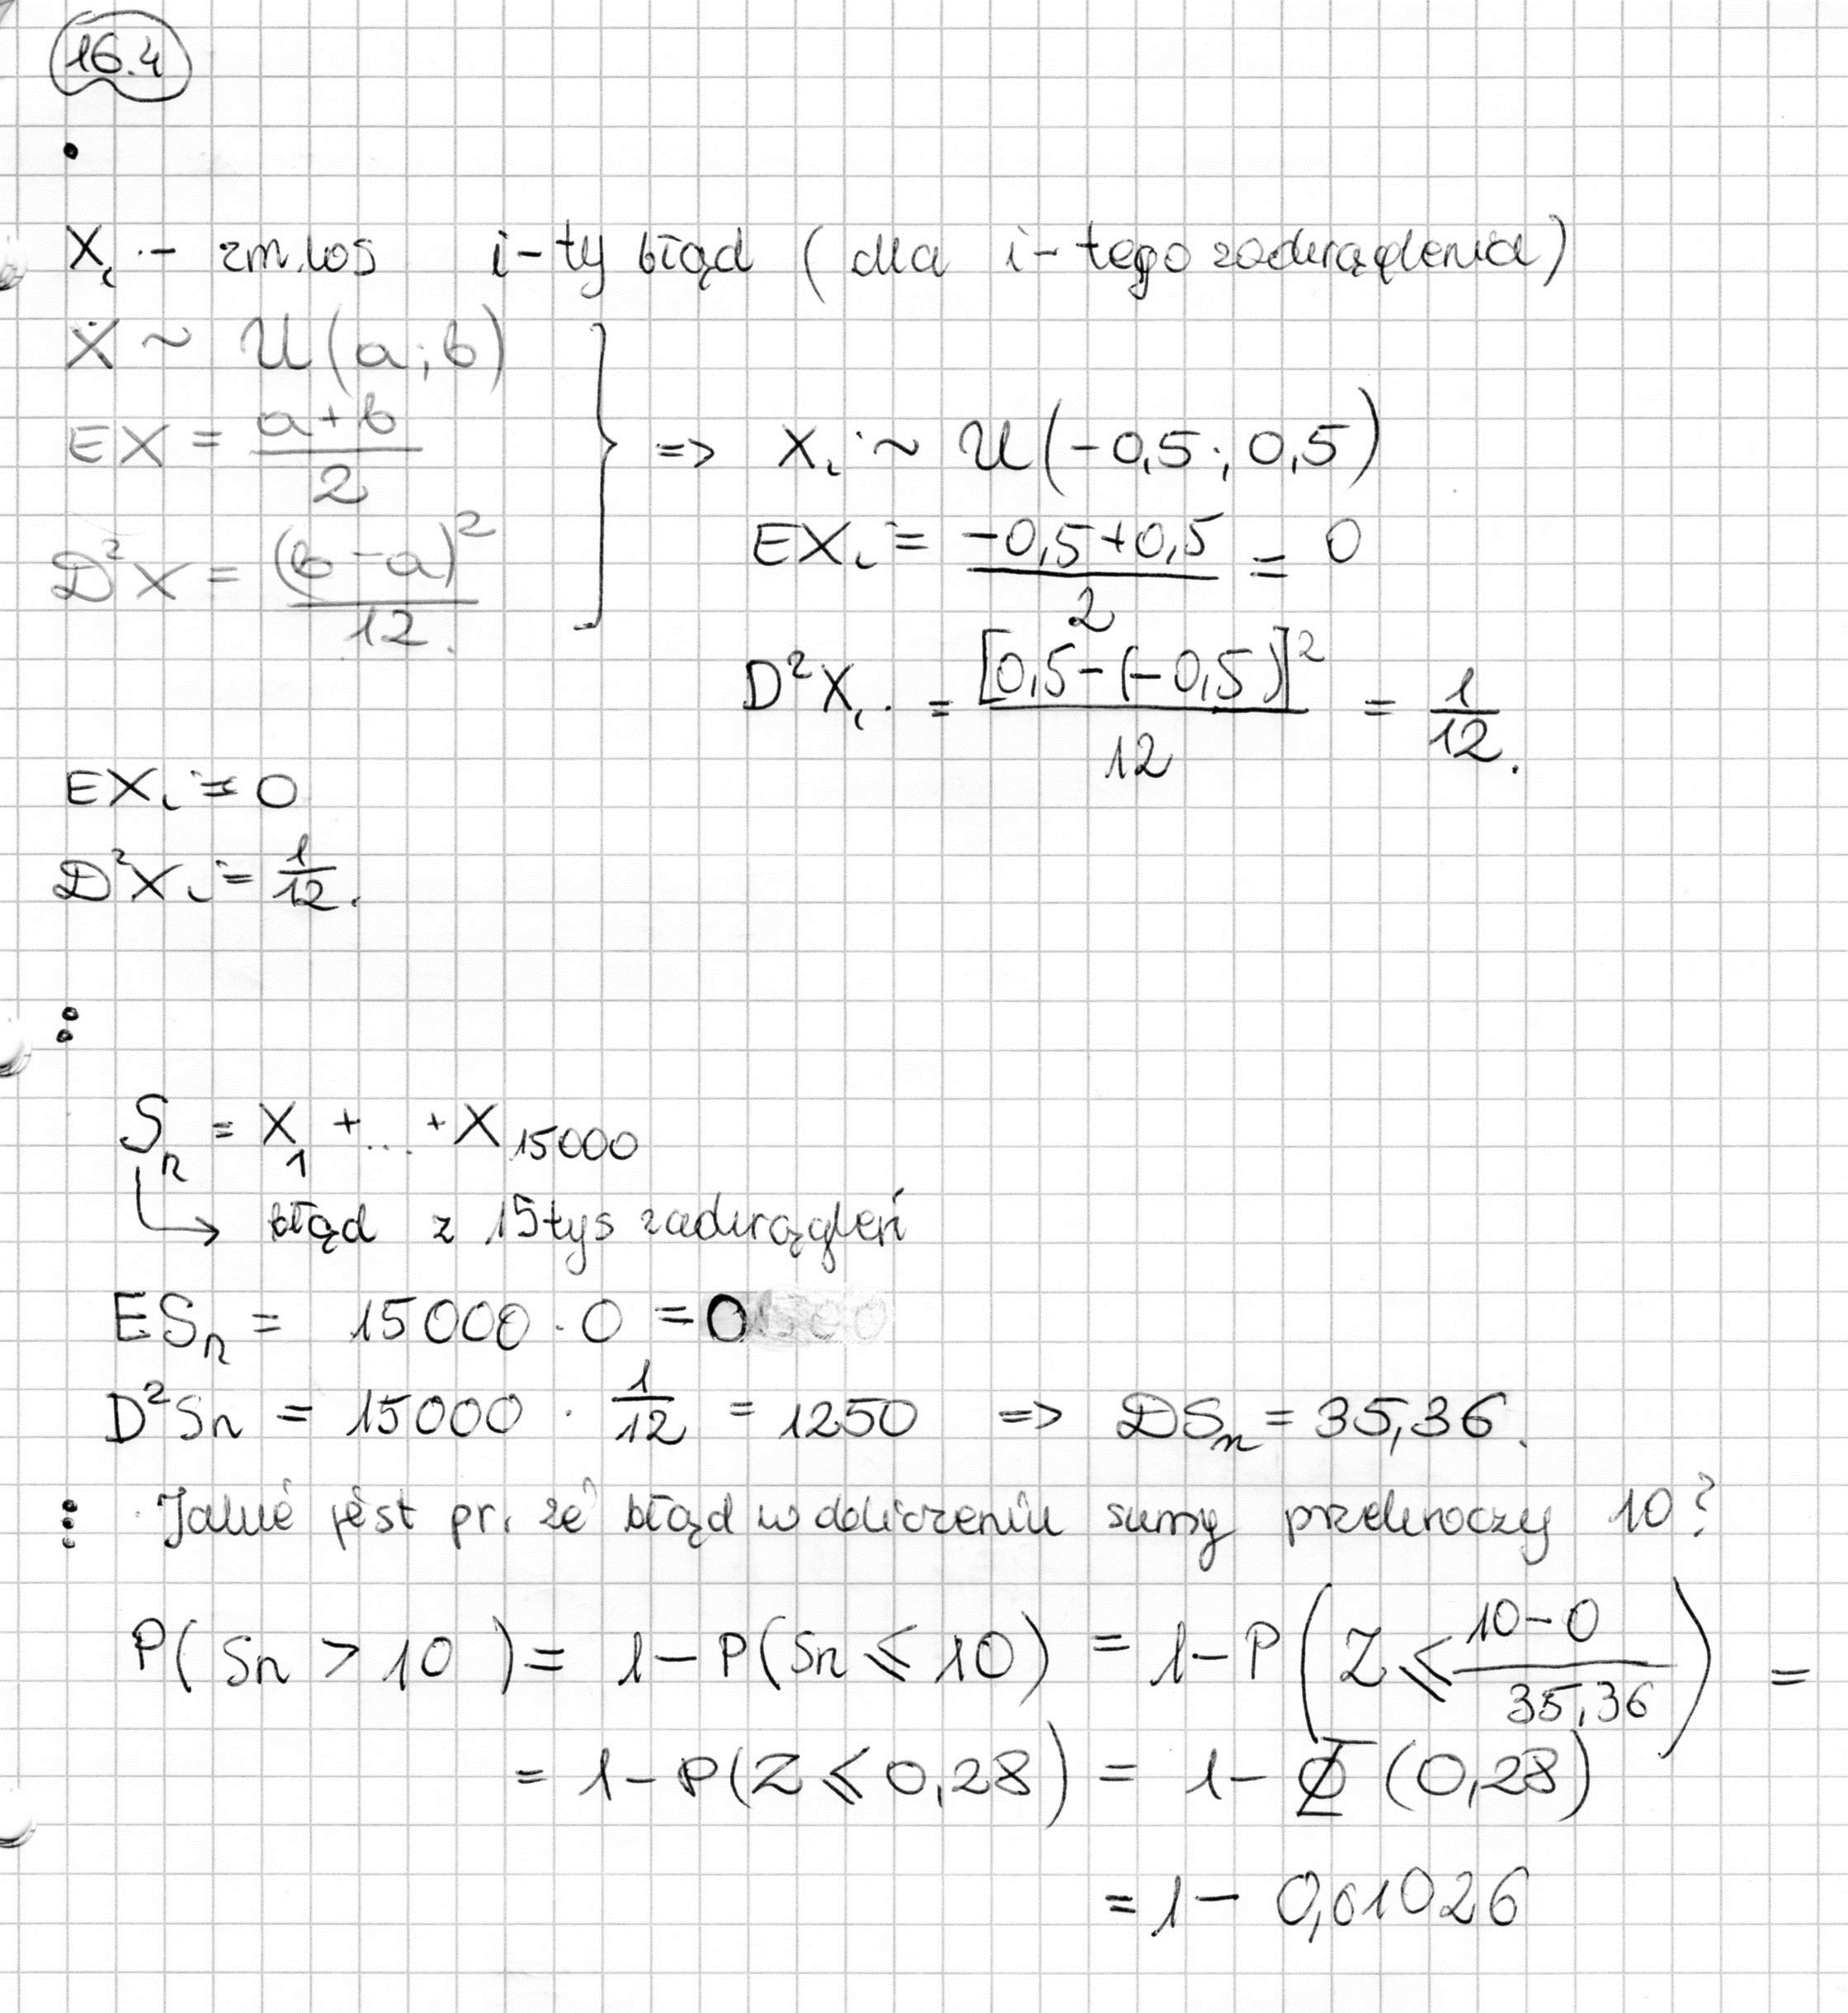 16.4
Xi - zm.los i-ty błąd (dla i-tego zaokrąglenia)
X ~ U(a;b)
EX = (a+b)/2
D²X = (b-a)²/12
=> Xi ~ U(-0,5; 0,5)
EXi = (-0,5+0,5)/2 = 0
D²Xi = [0,5-(-0,5)]²/12 = 1/12.
EXi = 0
D²Xi = 1/12.
Sn = X1 + ... + X15000
↳ błąd z 15tys zaokrągleń
ESn = 15000 · 0 = 0
D²Sn = 15000 · 1/12 = 1250 => DSn = 35,36.
Jakie jest pr. że błąd w obliczeniu sumy przekroczy 10?
P(Sn > 10) = 1-P(Sn ≤ 10) = 1-P(Z ≤ (10-0)/35,36) =
= 1-P(Z ≤ 0,28) = 1-Φ(0,28)
= 1- 0,61026